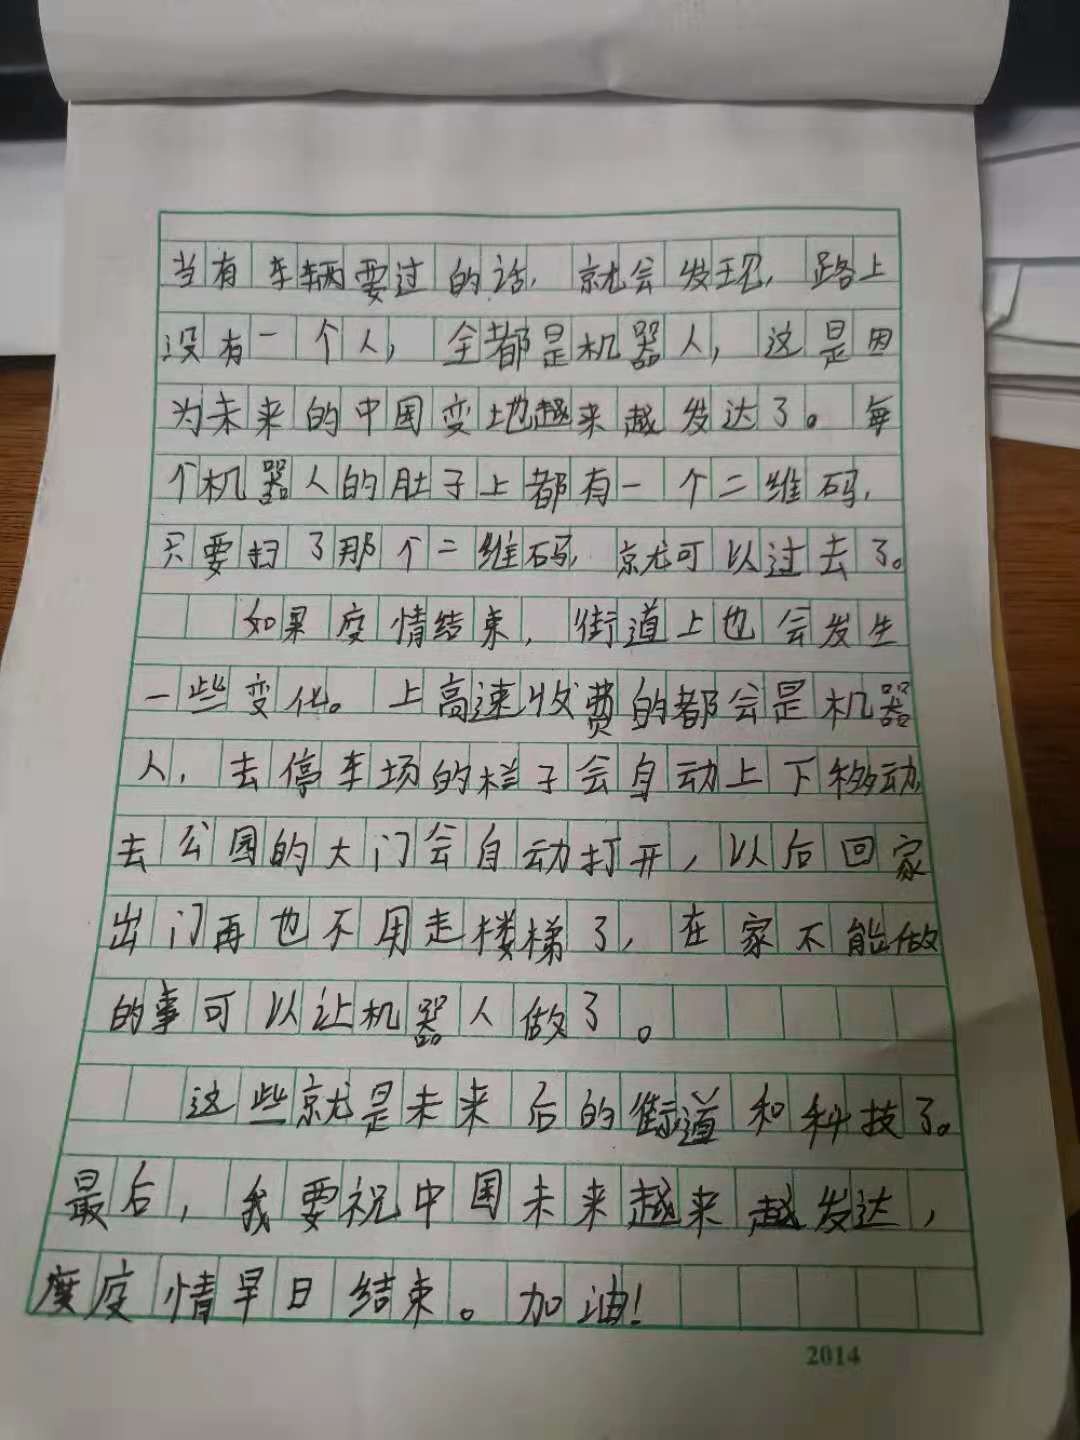 当有车辆要过的话，就会发现，路上
没有一个人，全都是机器人，这是因
为未来的中国变地越来越发达了。每
个机器人的肚子上都有一个二维码，
只要扫了那个二维码，就可以过去了。
如果疫情结束，街道上也会发生
一些变化。上高速收费的都会是机器
人，去停车场的栏子会自动上下移动，
去公园的大门会自动打开，以后回家
出门再也不用走楼梯了，在家不能做
的事可以让机器人做了。
这些就是未来后的街道和科技了。
最后，我要祝中国未来越来越发达，
疫情早日结束。加油！
2014